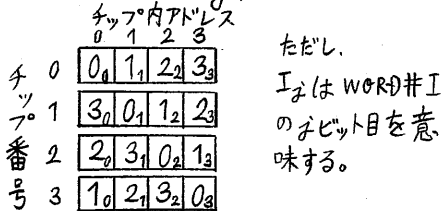 チップ内アドレス
0 1 2 3
チップ番号
0 0₀ 1₁ 2₂ 3₃
1 3₀ 0₁ 1₂ 2₃
2 2₀ 3₁ 0₂ 1₃
3 1₀ 2₁ 3₂ 0₃
ただし、
Iⱼは WORD#I
のjビット目を意
味する。